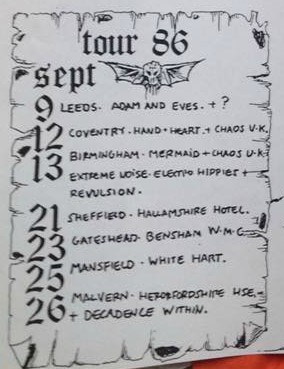 tour 86
sept
9 LEEDS. ADAM AND EVES. + ?
12 COVENTRY. HAND + HEART. + CHAOS U.K.
13 BIRMINGHAM - MERMAID + CHAOS U.K.
EXTREME NOISE. ELECTRO HIPPIES +
REVULSION.
21 SHEFFIELD - HALLAMSHIRE HOTEL.
23 GATESHEAD. BENSHAM W.M.C.
25 MANSFIELD - WHITE HART.
26 MALVERN - HEREFORDSHIRE HSE.
+ DECADENCE WITHIN.